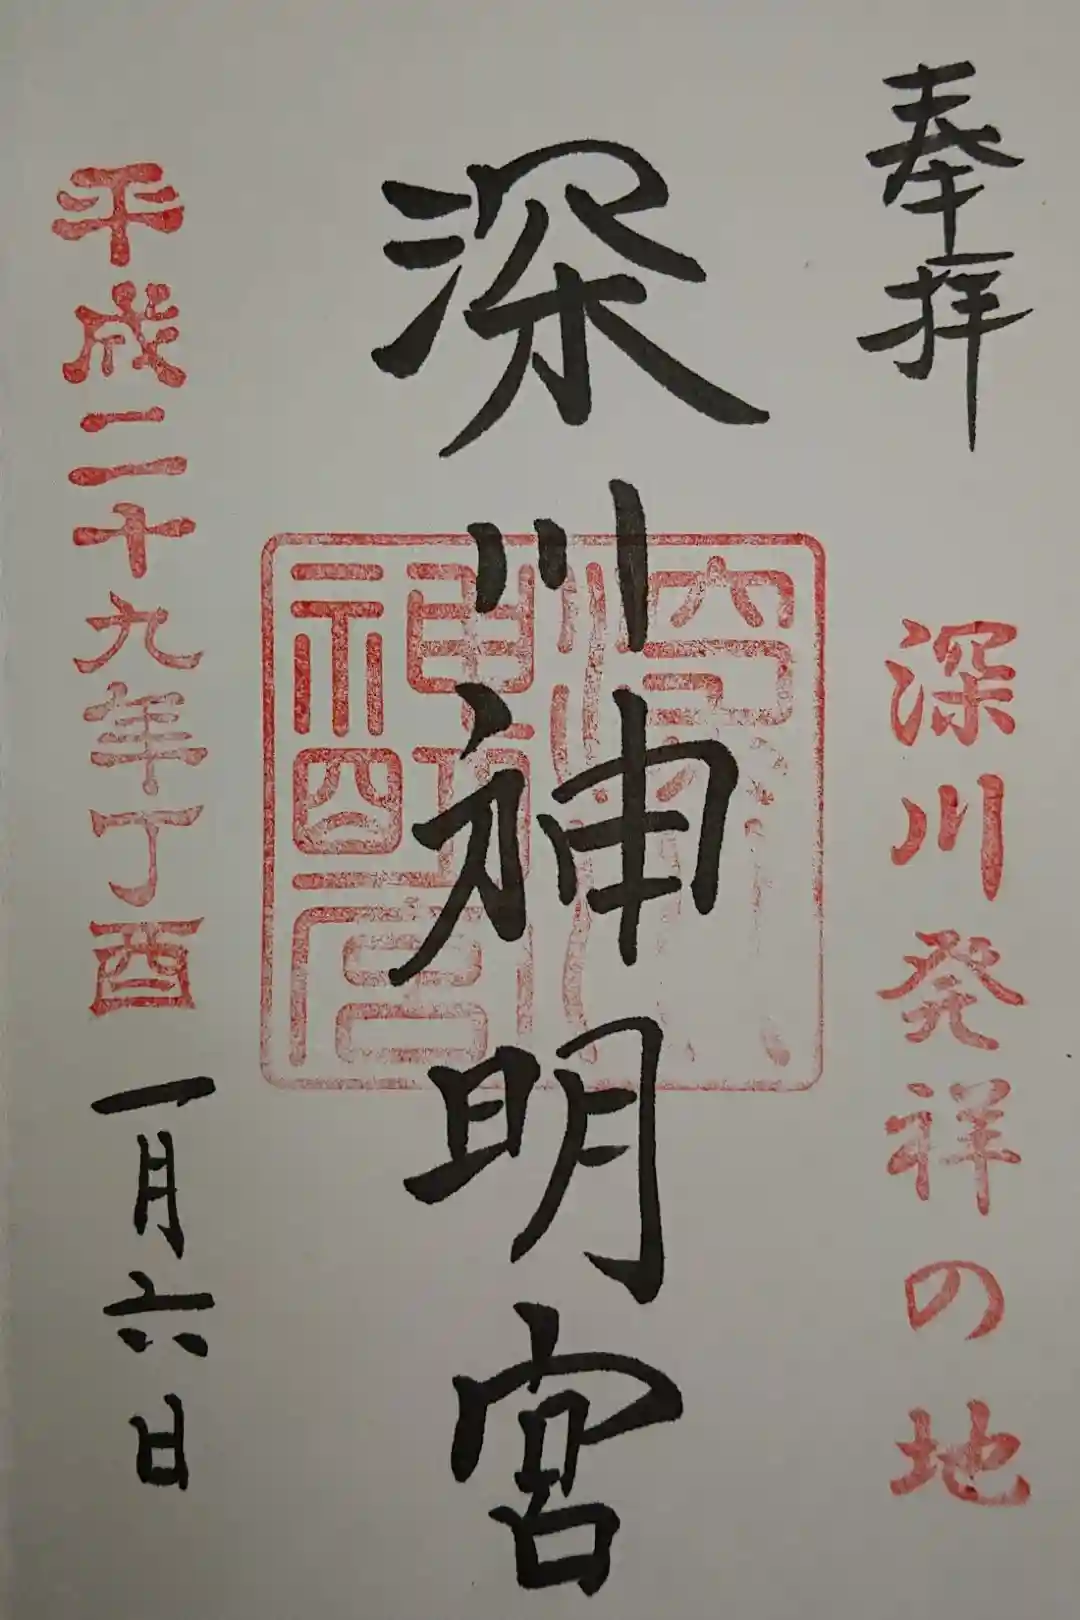 奉拝
深川発祥の地
深川神明宮
平成二十九年丁酉
一月六日